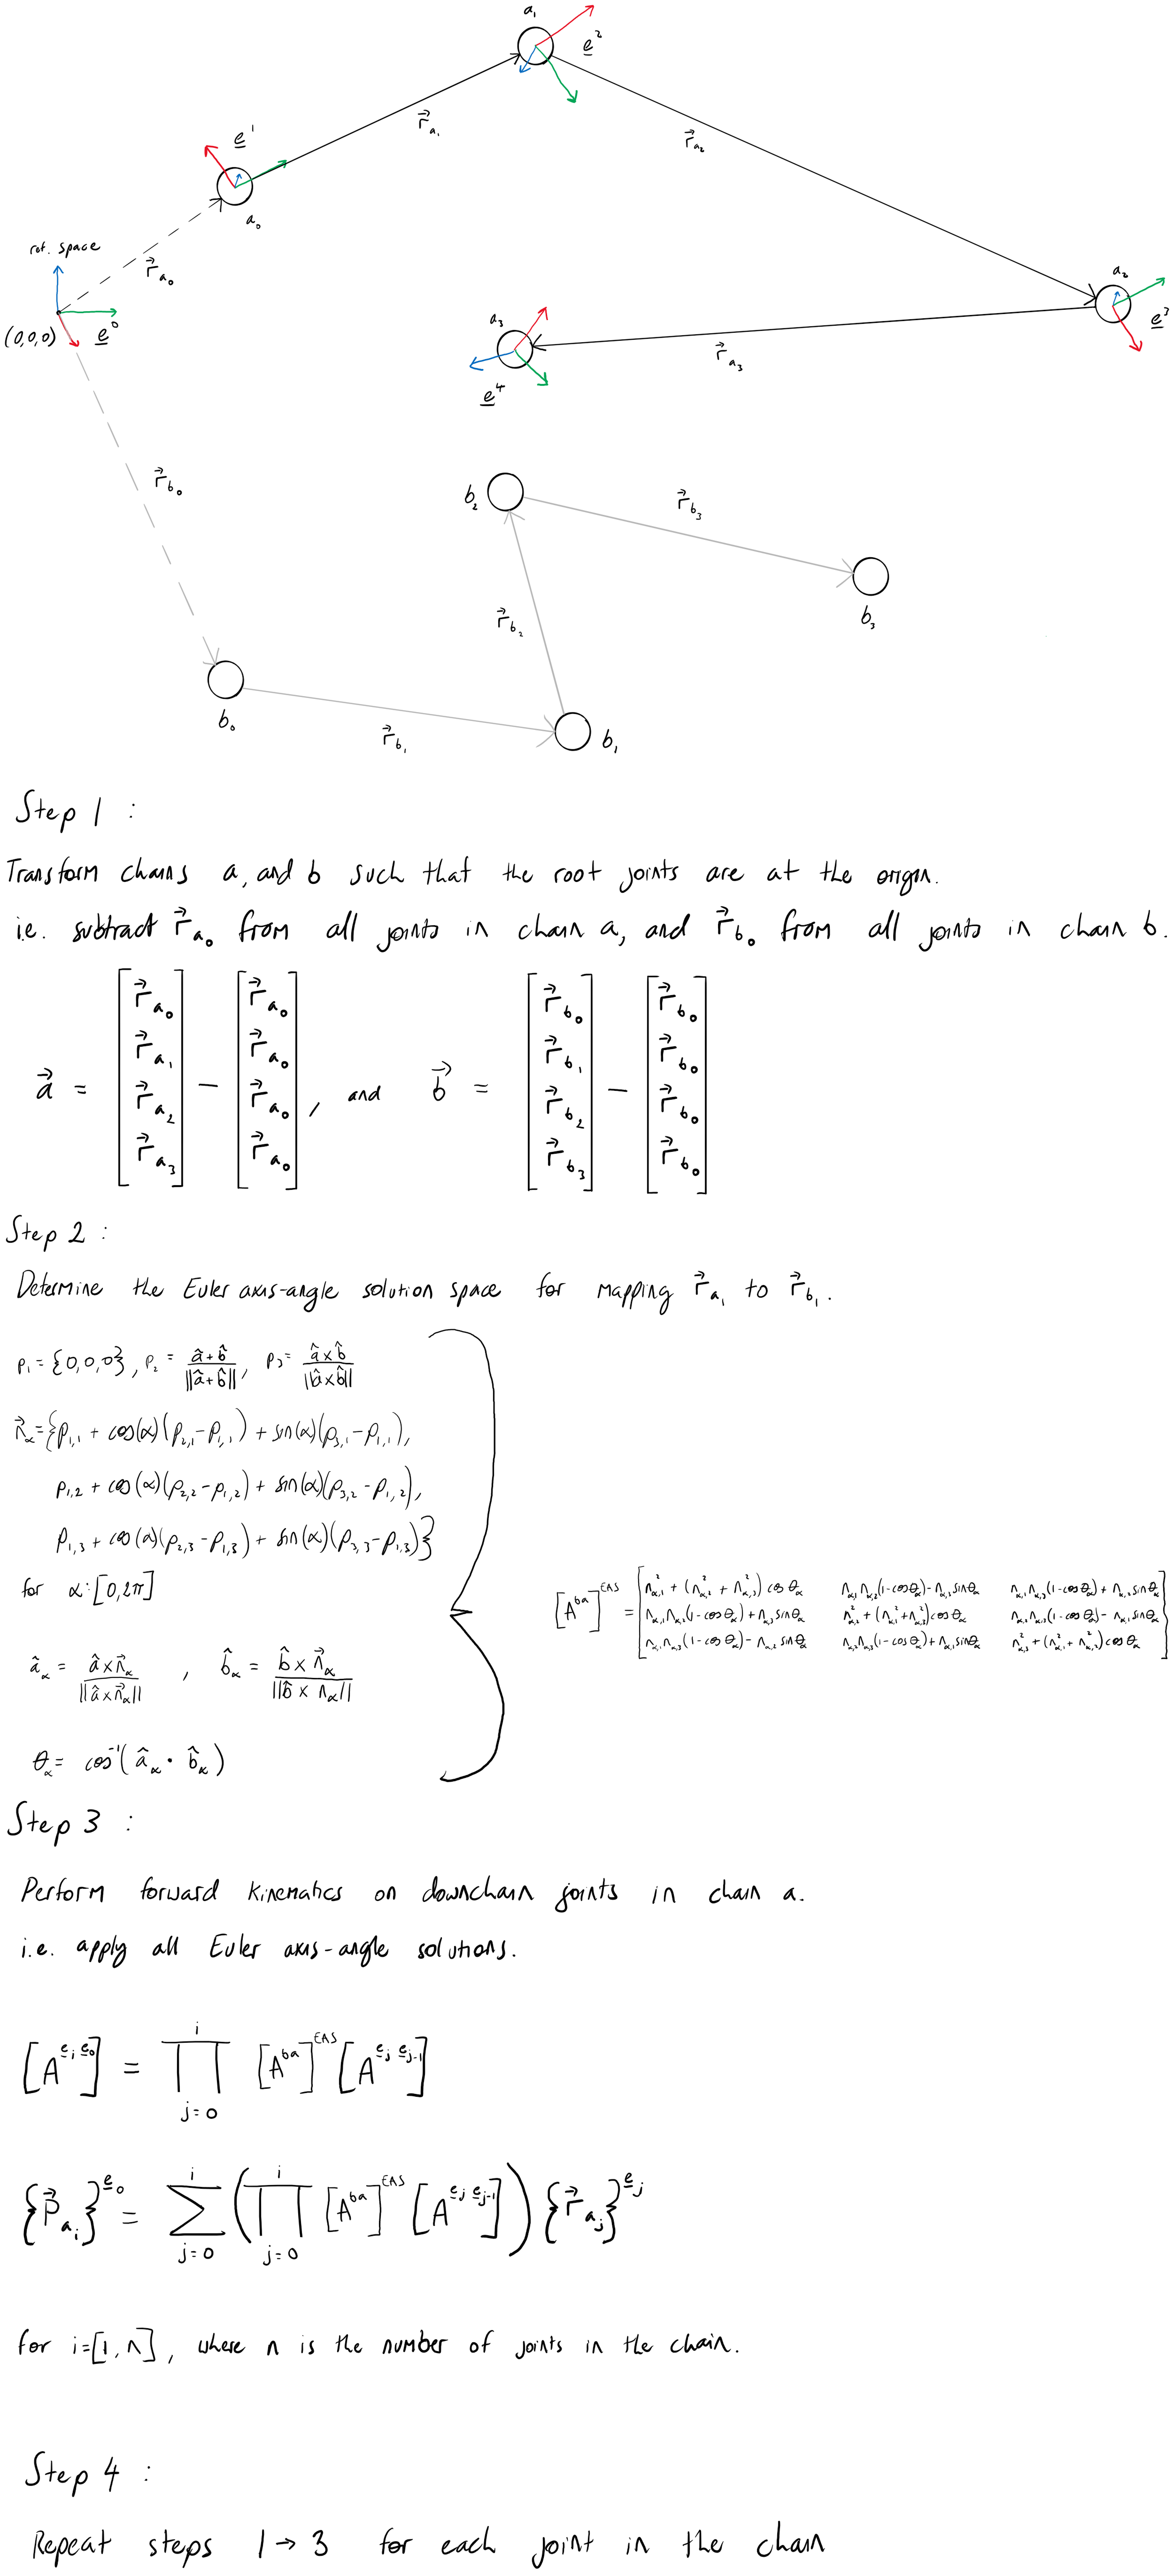 a₁
e²
r⃗ₐ₁
r⃗ₐ₂
e¹
a₀
rot. space
r⃗ₐ₀
(0,0,0)
e⁰
a₂
e³
a₃
r⃗ₐ₃
e⁴
r⃗_b₀
b₂
r⃗_b₃
b₃
r⃗_b₂
b₀
r⃗_b₁
b₁
Step 1 :
Transform chains a, and b such that the root joints are at the origin.
i.e. subtract r⃗ₐ₀ from all joints in chain a, and r⃗_b₀ from all joints in chain b.
a⃗ = [r⃗ₐ₀ r⃗ₐ₁ r⃗ₐ₂ r⃗ₐ₃] − [r⃗ₐ₀ r⃗ₐ₀ r⃗ₐ₀ r⃗ₐ₀], and b⃗ = [r⃗_b₀ r⃗_b₁ r⃗_b₂ r⃗_b₃] − [r⃗_b₀ r⃗_b₀ r⃗_b₀ r⃗_b₀]
Step 2 :
Determine the Euler axis-angle solution space for mapping r⃗ₐ₁ to r⃗_b₁.
p₁ = {0,0,0}, p₂ = (â+b̂)/||â+b̂||, p₃ = (â×b̂)/||â×b̂||
n⃗_α = {p₁,₁ + cos(α)(p₂,₁ − p₁,₁) + sin(α)(p₃,₁ − p₁,₁),
p₁,₂ + cos(α)(p₂,₂ − p₁,₂) + sin(α)(p₃,₂ − p₁,₂),
p₁,₃ + cos(α)(p₂,₃ − p₁,₃) + sin(α)(p₃,₃ − p₁,₃)}
for α:[0,2π]
[A^ba]^EAS = [n²_α,1 + (n²_α,2 + n²_α,3) cos θ_α n_α,1 n_α,2(1−cos θ_α) − n_α,3 sin θ_α n_α,1 n_α,3(1−cos θ_α) + n_α,2 sin θ_α
n_α,1 n_α,2(1−cos θ_α) + n_α,3 sin θ_α n²_α,2 + (n²_α,1 + n²_α,3) cos θ_α n_α,2 n_α,3(1−cos θ_α) − n_α,1 sin θ_α
n_α,1 n_α,3(1−cos θ_α) − n_α,2 sin θ_α n_α,2 n_α,3(1−cos θ_α) + n_α,1 sin θ_α n²_α,3 + (n²_α,1 + n²_α,2) cos θ_α]
â_α = (â×n⃗_α)/||â×n⃗_α|| , b̂_α = (b̂ × n⃗_α)/||b̂ × n_α||
θ_α = cos⁻¹(â_α · b̂_α)
Step 3 :
Perform forward kinematics on downchain joints in chain a.
i.e. apply all Euler axis-angle solutions.
[A^(e_i e_0)] = ∏_(j=0)^i [A^ba]^EAS [A^(e_j e_j-1)]
{P⃗_a_i}^(e_0) = Σ_(j=0)^i (∏_(j=0)^i [A^ba]^EAS [A^(e_j e_j-1)]) {r⃗_a_j}^(e_j)
for i=[1,n], where n is the number of joints in the chain.
Step 4 :
Repeat steps 1→3 for each joint in the chain